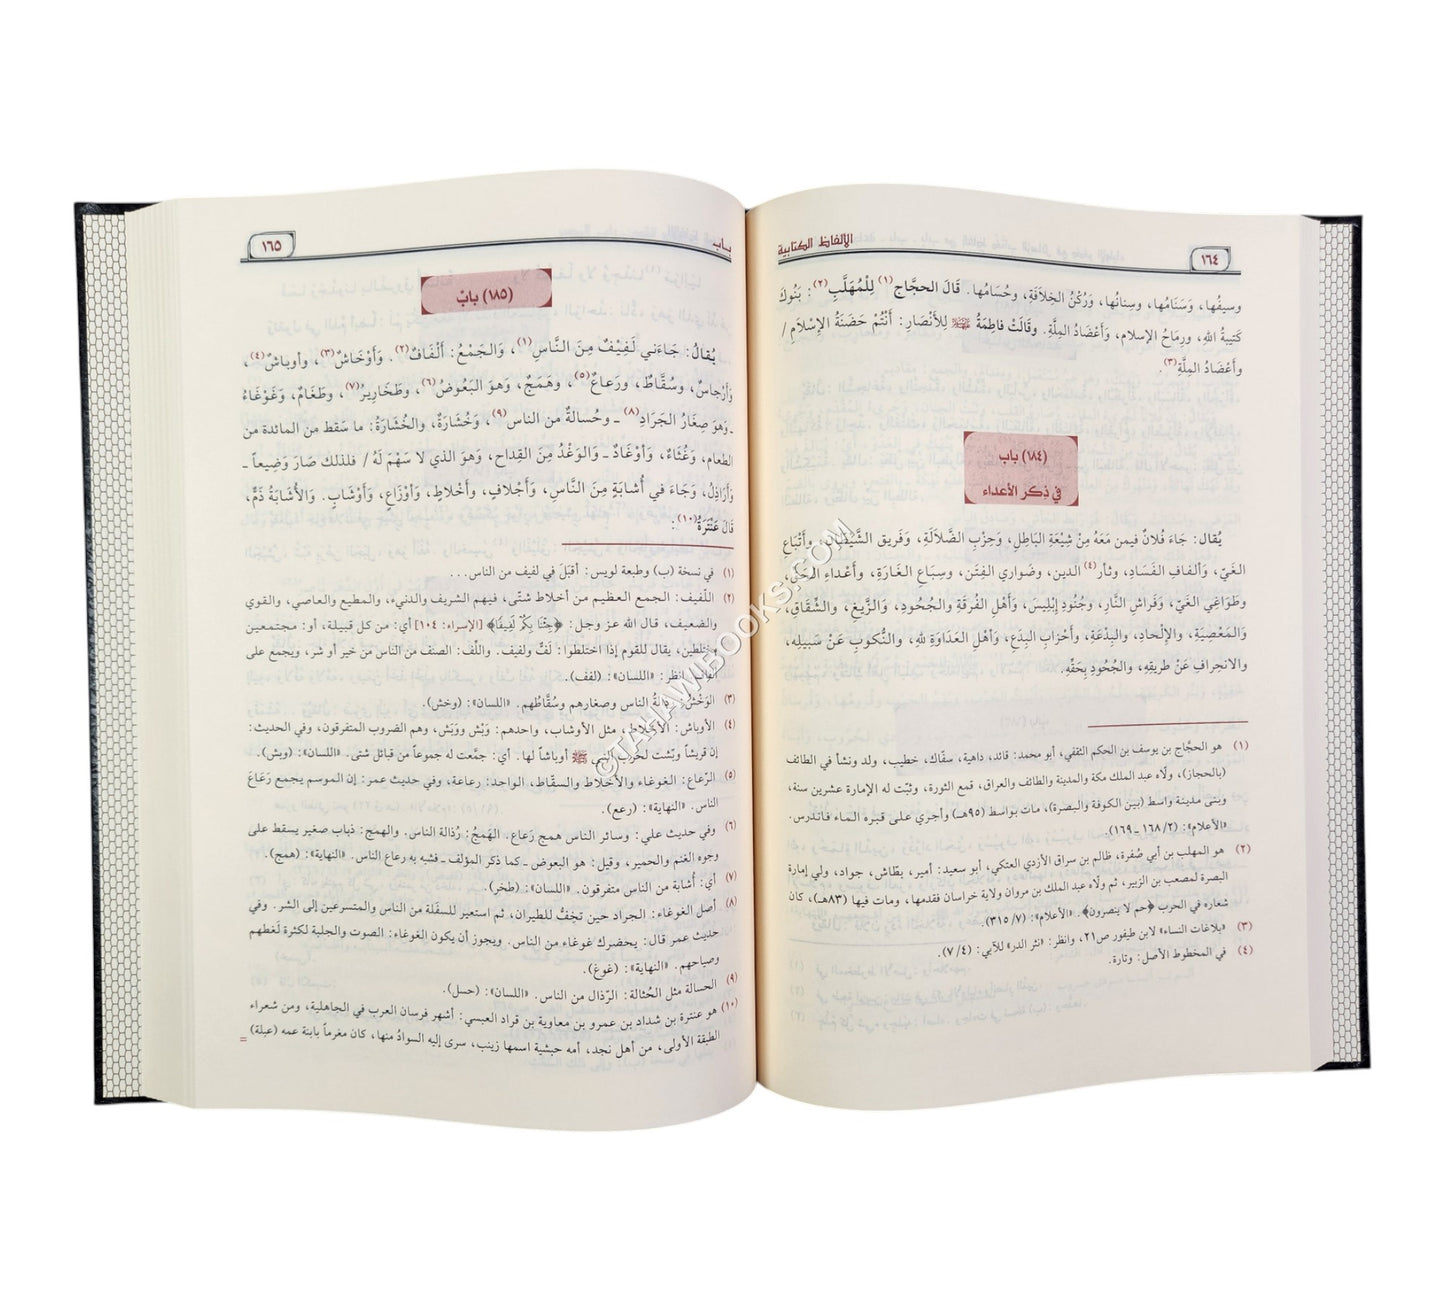 الألفاظ الكتابية
١٦٤
وسيفُها، وَسَنَامُها، وسِنانُها، وَرُكْنُ الخِلَافَةِ، وحُسَامُها. قَالَ الحجَّاج(١) لِلْمُهَلَّبِ(٢): بَنُوكَ
كَتيبةُ اللهِ، ورِمَاحُ الإسلام، وَأَعْضَادُ المِلَّةِ. وقَالَتْ فاطِمَةُ ﷺ لِلأَنْصَارِ: أَنْتُمْ حَضَنَةُ الإِسْلَامِ /
وأَعْضَادُ المِلَّةِ(٣).
(١٨٤) باب
في ذِكر الأعداء
يُقال: جَاءَ فُلانٌ فيمن مَعَهُ مِنْ شِيْعَةِ البَاطِلِ، وَحِزْبِ الضَّلَالَةِ، وَفَريق الشَّيْطَان، وأَتْبَاعِ
الغَيّ، وَألفافِ الفَسَادِ، وثأر(٤) الدين، وضَواري الفِتَن، وسِبَاع الغَارَةِ، وأَعْداءِ الحَقِّ،
وطَوَاغِي الغَيِّ، وَفَراشِ النَّارِ، وجُنُودِ إِبْلِيسَ، وَأَهْلِ الفُرقَةِ والجُحُودِ، وَالزَّيغ، والشِّقَاقِ،
وَالمَعْصِيَةِ، والإِلْحادِ، والبِدْعَةِ، وأَحْزَابِ البِدَعِ، وَأَهْلِ العَدَاوَةِ للهِ، والنُّكُوبِ عَنْ سَبيلِه،
والانحرافِ عَنْ طريقِهِ، والجُحُودِ بِحَقِّهِ.
(١) هو الحجَّاج بن يوسف بن الحكم الثقفي، أبو محمد: قائد، داهية، سفّاك، خطيب، ولد ونشأ في الطائف
(بالحجاز)، ولَّاه عبد الملك مكة والمدينة والطائف والعراق، قمع الثورة، وثبّت له الإمارة عشرين سنة،
وبنى مدينة واسط (بين الكوفة والبصرة)، مات بواسط (٩٥هـ) وأجري على قبره الماء فاندرس.
«الأعلام»: (٢/ ١٦٨ ـ ١٦٩).
(٢) هو المهلب بن أبي صُفرة، ظالم بن سراق الأزدي العتكي، أبو سعيد: أمير، بطّاش، جواد، ولي إمارة
البصرة لمصعب بن الزبير، ثم ولَّاه عبد الملك بن مروان ولاية خراسان فقدمها، ومات فيها (٨٣هـ)، كان
شعاره في الحرب ﴿حم لا ينصرون﴾. «الأعلام»: (٧/ ٣١٥).
(٣) «بلاغات النساء» لابن طيفور ص٢١، وانظر: «نثر الدر» للآبي: (٤/ ٧).
(٤) في المخطوط الأصل: وتارة.
باب
١٦٥
(١٨٥) بابٌ
يُقالُ: جَاءَني لَفِيْفٌ مِنَ النَّاسِ(١)، وَالجَمْعُ: أَلْفَافٌ(٢). وَأَوْخَاشٌ(٣)، وأوباشٌ(٤)،
وَأَرْجاسٌ، وسُقَّاطٌ، ورَعاعٌ(٥)، وهَمَجٌ، وَهوَ البَعُوضُ(٦)، وطَخَارِيرُ(٧)، وطَغَامٌ، وَغَوْغَاءُ
ـ وَهوَ صِغَارُ الجَرَادِ(٨) ـ وحُسالةٌ من الناس(٩)، وَخُشَارَةٌ، والخُشَارَةُ: ما سَقط من المائدة من
الطعام، وَغُثَاءٌ، وَأَوْغَادٌ ـ وَالوَغْدُ مِنَ القِداح، وَهوَ الذي لا سَهْمَ لَهُ / فلذلك صَارَ وَضِيعاً ـ
وَأَرَاذِلُ، وَجَاءَ في أُشابَةٍ مِنَ النَّاسِ، وَأَجْلافٍ، وأخْلاطٍ، وَأَوْزَاعٍ، وَأَوْشَابٍ. وَالأُشَابَةُ ذَمٌّ،
قالَ عَنْتَرَةُ(١٠):
(١) في نسخة (ب) وطبعة لويس: أقبَلَ في لفيف من الناس...
(٢) اللّفيف: الجمع العظيم من أخلاط شتّى، فيهم الشريف والدنيء، والمطيع والعاصي، والقوي
والضعيف، قال الله عز وجل: ﴿جِئْنَا بِكُمْ لَفِيفًا﴾ [الإسراء: ١٠٤] أي: من كل قبيلة، أو: مجتمعين
مختلطين، يقال للقوم إذا اختلطوا: لَفٌّ ولفيف. واللِّفّ: الصنف من الناس من خير أو شر، ويجمع على
ألفاف. انظر: «اللسان»: (لفف).
(٣) الوَخْشُ: رذالةُ الناس وصغارهم وسُقَّاطُهم. «اللسان»: (وخش).
(٤) الأوباش: الأخلاط، مثل الأوشاب، واحدهم: وَبْش ووَبَش، وهم الضروب المتفرقون، وفي الحديث:
إن قريشاً وبّشت لحرب النبي ﷺ أوباشاً لها. أي: جمَّعت له جموعاً من قبائل شتى. «اللسان»: (وبش).
(٥) الرِّعاع: الغوغاء والأخلاط والسقّاط، الواحد: رعاعة، وفي حديث عمر: إن الموسم يجمع رَعَاعَ
الناس. «النهاية»: (رعع).
(٦) وفي حديث علي: وسائر الناس همج رَعاع. الهَمجُ: رُذالة الناس. والهمج: ذباب صغير يسقط على
وجوه الغنم والحمير، وقيل: هو البعوض ـ كما ذكر المؤلف ـ فشبه به رعاع الناس. «النهاية»: (همج).
(٧) أي: أُشابة من الناس متفرقون. «اللسان»: (طخر).
(٨) أصل الغوغاء: الجراد حين تخِفُّ للطيران، ثم استعير للسفَلة من الناس والمتسرعين إلى الشر. وفي
حديث عمر قال: يحضرك غوغاء من الناس. ويجوز أن يكون الغوغاء: الصوت والجلبة لكثرة لَغطهم
وصياحهم. «النهاية»: (غوغ).
(٩) الحسالة مثل الحُثالة: الرّذال من الناس. «اللسان»: (حسل).
(١٠) هو عنترة بن شداد بن عمرو بن معاوية بن قراد العبسي: أشهر فرسان العرب في الجاهلية، ومن شعراء
الطبقة الأولى، من أهل نجد، أمه حبشية اسمها زينب، سرى إليه السوادُ منها، كان مغرماً بابنة عمه (عبلة) =
© TAHAWIBOOKS.COM